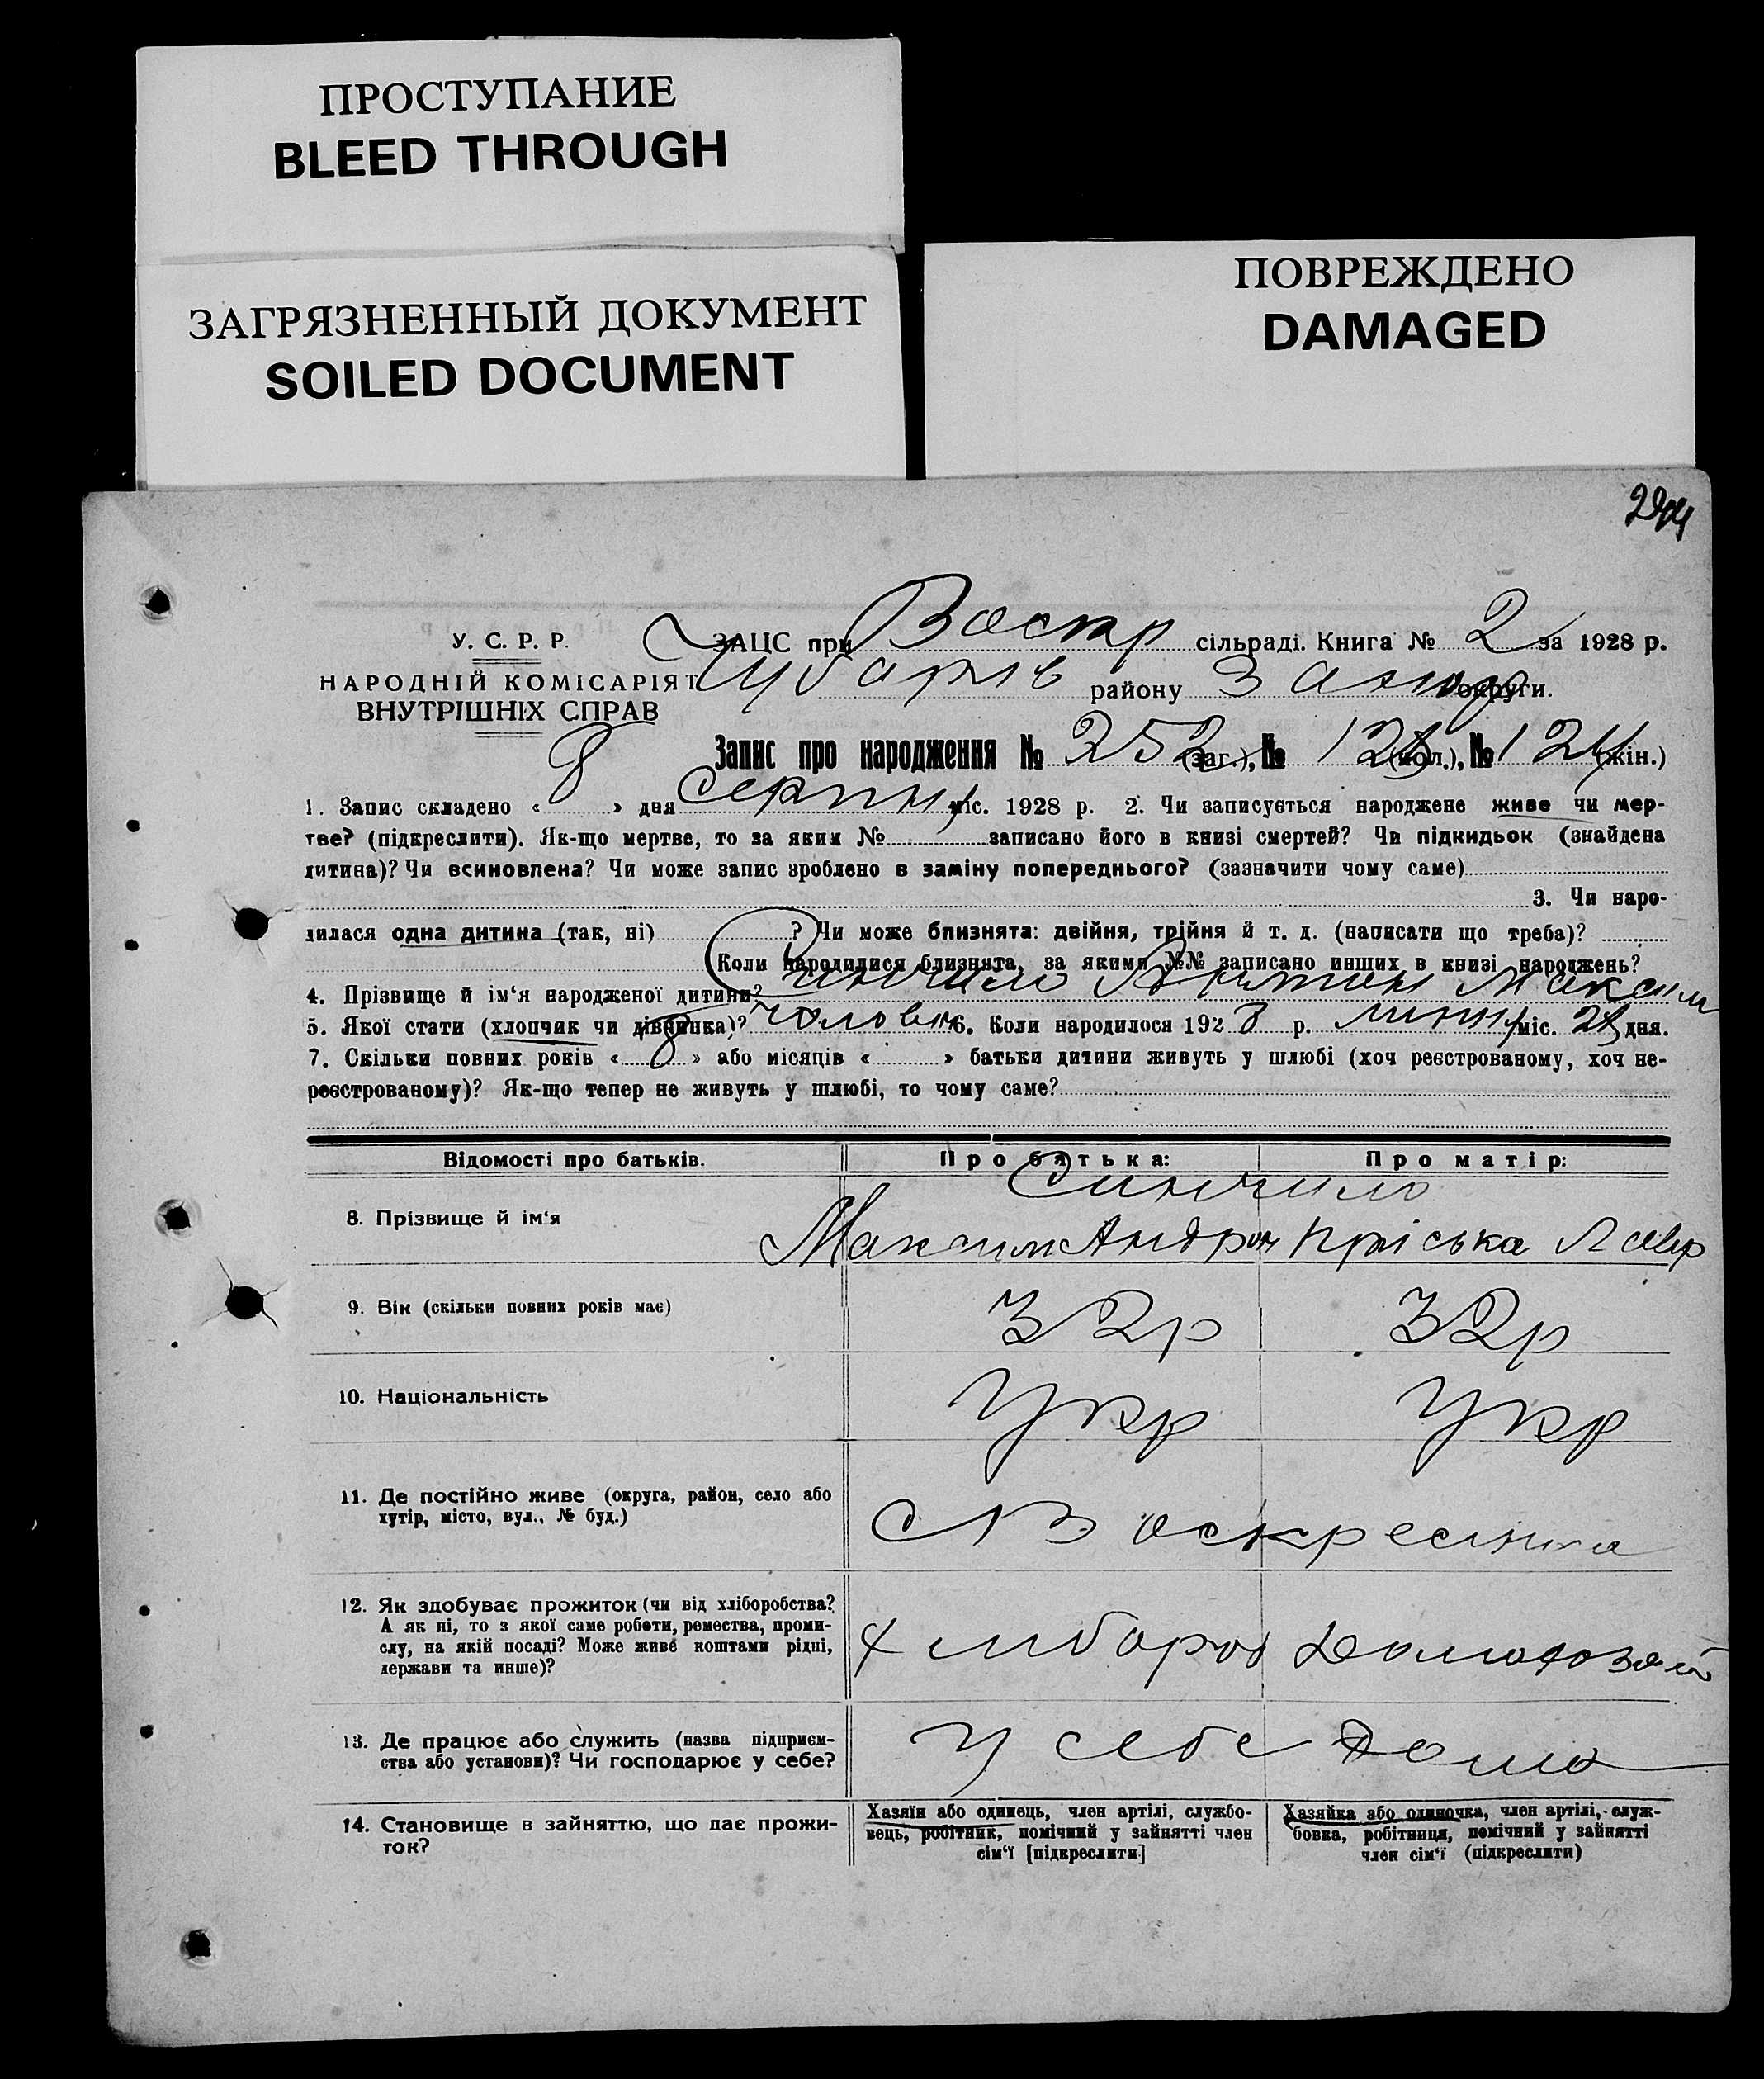 ПРОСТУПАНИЕ
BLEED THROUGH
ЗАГРЯЗНЕННЫЙ ДОКУМЕНТ
SOILED DOCUMENT
ПОВРЕЖДЕНО
DAMAGED
У. С. Р. Р.
НАРОДНІЙ КОМІСАРІЯТ
ВНУТРІШНІХ СПРАВ
ЗАЦС при Воскр сільраді. Книга № 2 за 1928 р.
Чубарів району Запор округи.
Запис про народження № 252 (заг.), № (чол.), № 124 (жін.)
1. Запис складено « 8 » дня Серпня міс. 1928 р. 2. Чи записується народжене живе чи мер-
тве? (підкреслити). Як-що мертве, то за яким № записано його в книзі смертей? Чи підкидьок (знайдена
дитина)? Чи всиновлена? Чи може запис зроблено в заміну попереднього? (зазначити чому саме)
3. Чи наро-
дилася одна дитина (так, ні) ? Чи може близнята: двійня, трійня й т. д. (написати що треба)?
Коли народилися близнята, за якими №№ записано инших в книзі народжень?
4. Прізвище й ім'я народженої дитини? Максим
5. Якої стати (хлопчик чи дівчинка)? чоловік 6. Коли народилося 1928 р. липня міс. дня.
7. Скільки повних років « 8 » або місяців « » батьки дитини живуть у шлюбі (хоч реєстрованому, хоч не-
реєстрованому)? Як-що тепер не живуть у шлюбі, то чому саме?
Відомості про батьків. Про батька: Про матір:
8. Прізвище й ім'я
Максим Андрон Пріська Лавр
9. Вік (скільки повних років має) 32р 32р
10. Національність Укр Укр
11. Де постійно живе (округа, район, село або
хутір, місто, вул., № буд.)
с Воскресінка
12. Як здобуває прожиток (чи від хліборобства?
А як ні, то з якої саме роботи, ремества, проми-
слу, на якій посаді? Може живе коштами рідні,
держави та инше)?
13. Де працює або служить (назва підприєм-
ства або установи)? Чи господарює у себе?
у себе дома
14. Становище в зайняттю, що дає прожи-
ток?
Хазяїн або одинець, член артілі, службо-
вець, робітник, помічний у зайнятті член
сім'ї [підкреслити]
Хазяйка або одиночка, член артілі, служ-
бовка, робітниця, помічний у зайнятті
член сім'ї (підкреслити)